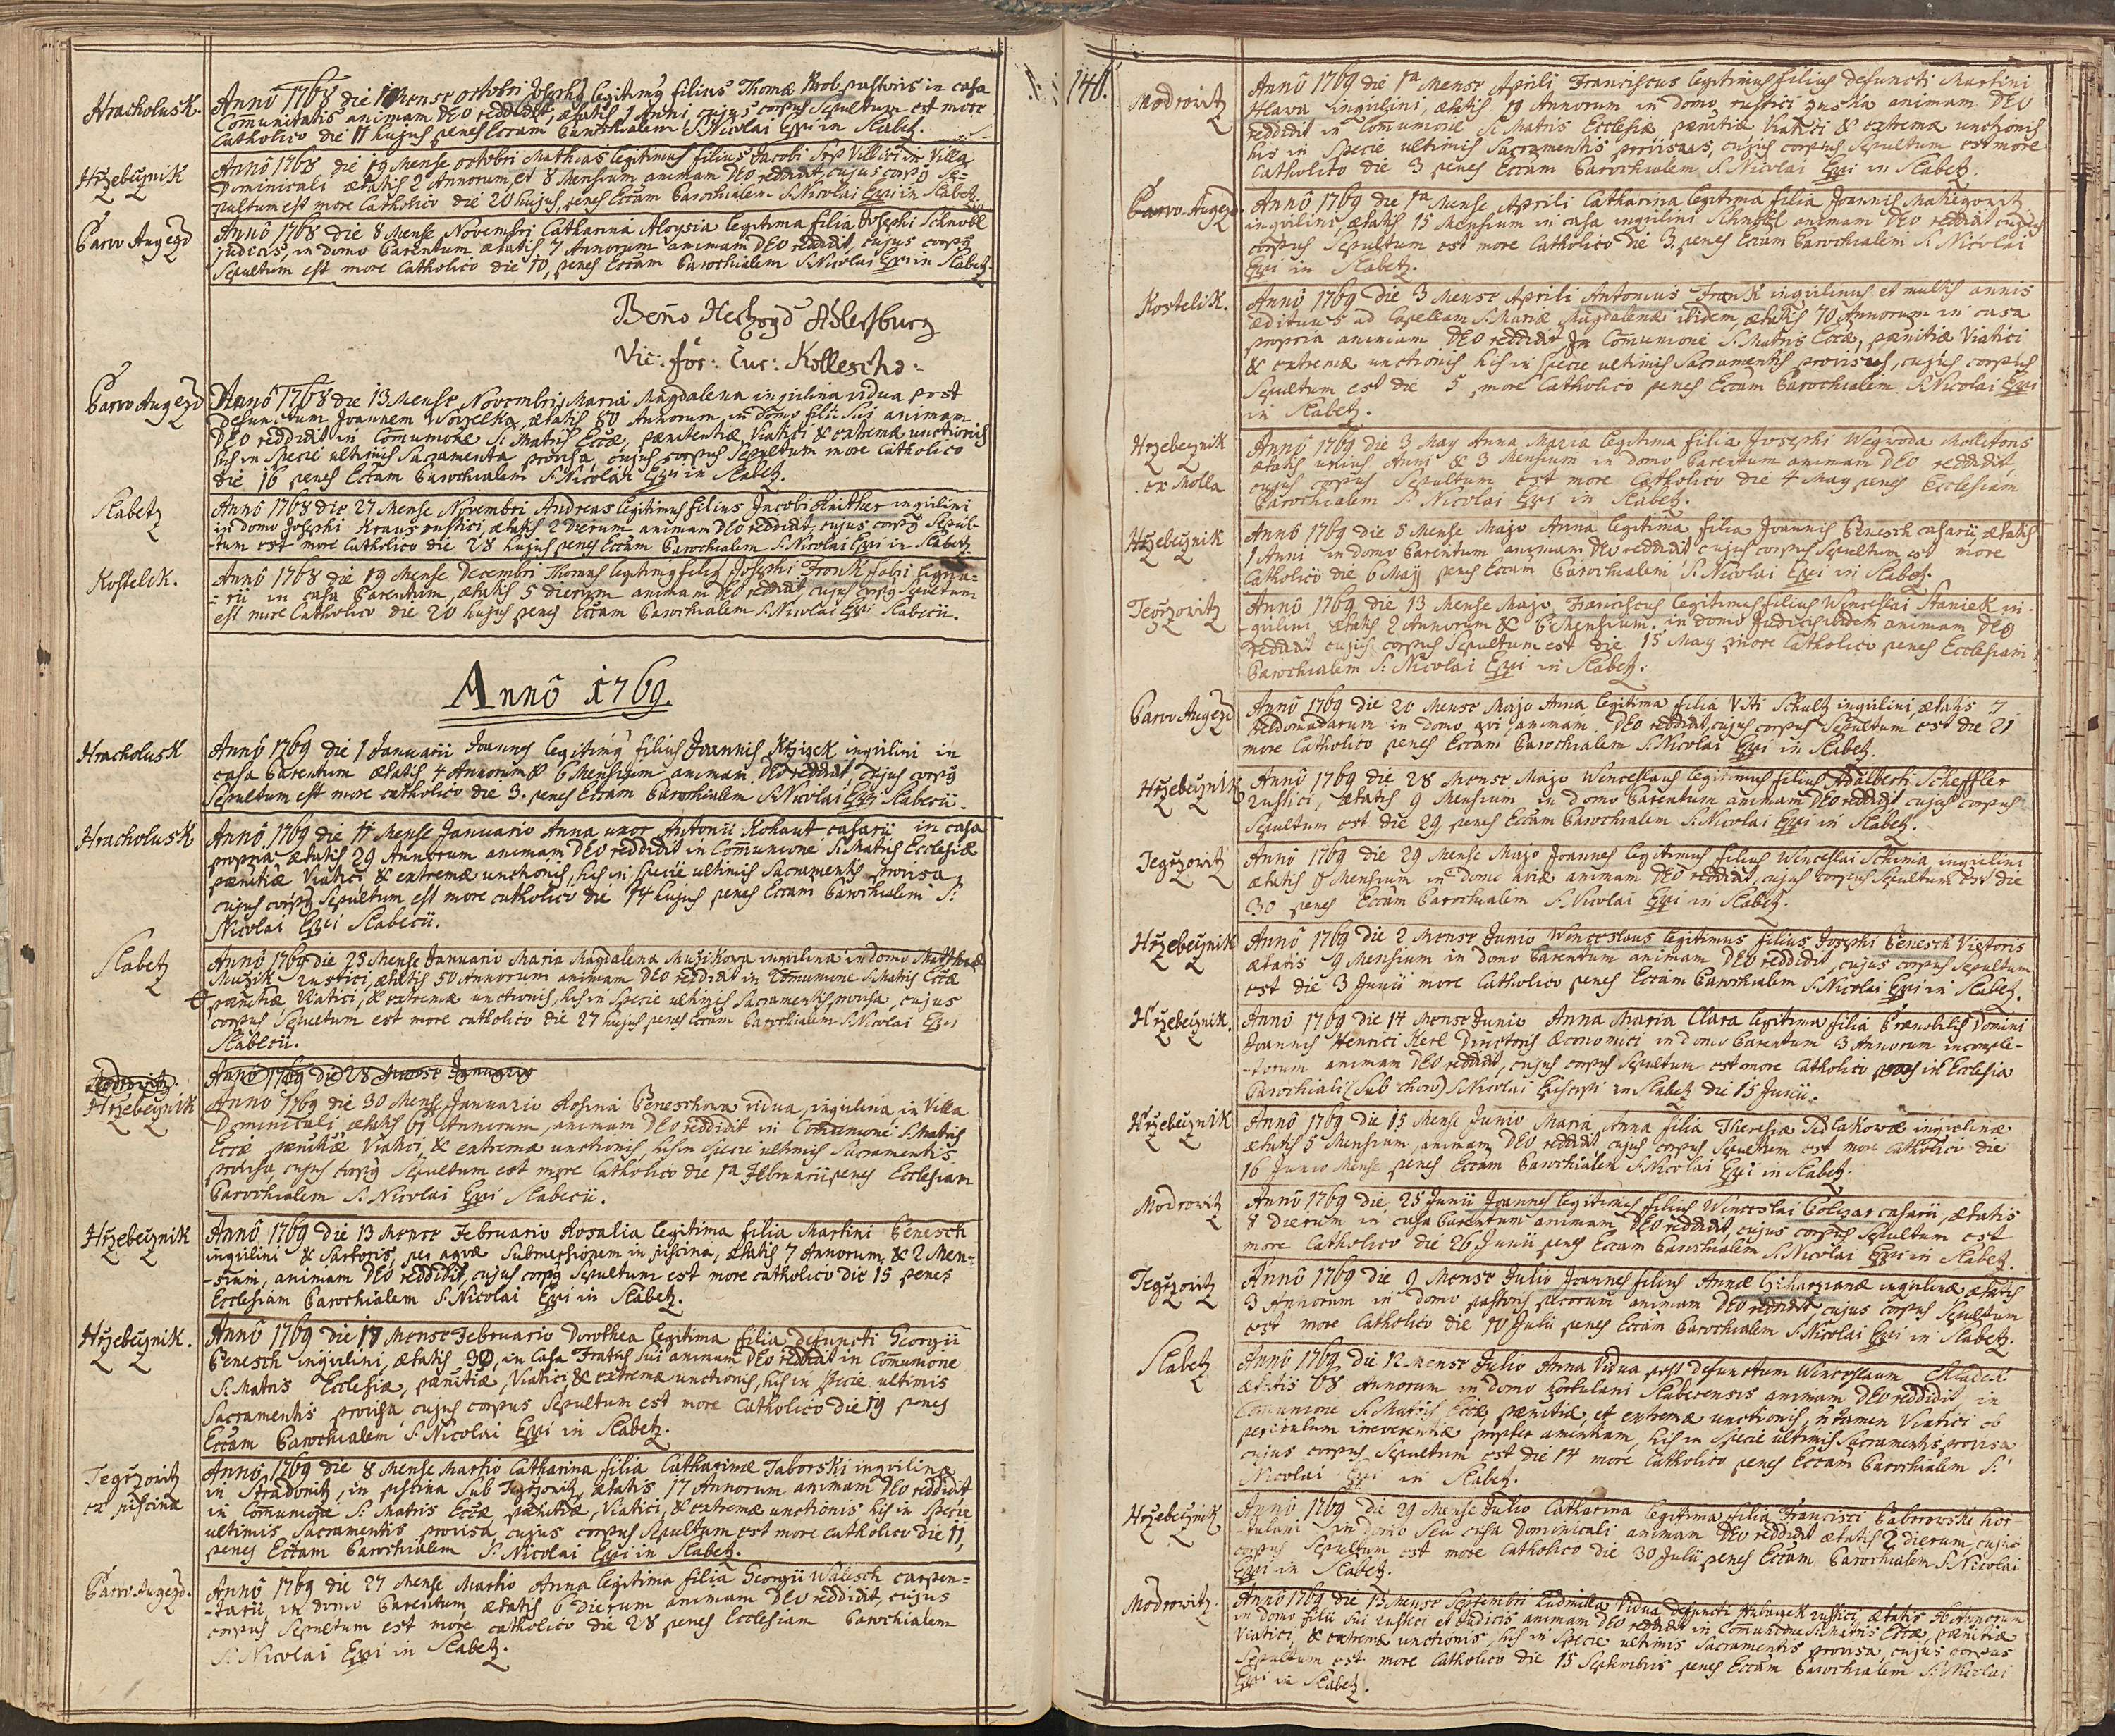 Hracholusk.
Anno 1768 die Mense octobri Joseph legitimg filius Thomæ pastoris in casa
Comunitatis animam DEO reddidit, ætatis 1 Anni, cujus corpus Sepultum est more
Catholico die 11 hujus penes Eccam Parochialem S. Nicolai Eppi in Slabetz.
Hržebečznik
Anno 1768 die 19 Mense octobri Mathias legitimus filius Jacobi Villici in Villa
Dominicali ætatis 2 Annorum, et 8 Mensium animam DEO reddidit, cujus corpg Se-
pultum est more Catholico die 20 hujus, penes Eccam Parochialem S. Nicolai Eppi in Slabetz.
Parvo Augezd
Anno 1768 die 8 Mense Novembri Catharina Aloysia legitima filia Josephi Schnobl
judicis, in domo Parentum ætatis 7 Annorum animam DEO reddidit, cujus corpg
Sepultum est more Catholico die 10, penes Eccam Parochialem S. Nicolai Eppi in Slabetz.
Beno Hertzogd Adlersburg
Vic: for: Cur: Kollescho:
Parvo Augezd
Anno 1768 die 13 Mense Novembri Maria Magdalena inquilina vidua post
defunctum Joannem ætatis 80 Annorum, in domo filii Sui animam
DEO reddidit in Comunione S. Matris Eccæ, pænitentiæ Viatici & extremæ unctionis
his in Specie ultimis Sacramenta provisa, cujus corpus Sepultum more Catholico
die 16 penes Eccam Parochialem S. Nicolai Eppi in Slabetz.
Slabetz
Anno 1768 die 27 Mense Novembri Andreas legitimus filius Jacobi inquilini
in domo Josephi Kraus rustici, ætatis 2 Dierum animam DEO reddidit, cujus corpg Sepul-
-tum est more Catholico die 28 hujus penes Eccam Parochialem S. Nicolai Eppi in Slabetz.
Kostelik.
Anno 1768 die 19 Mense Decembri Thomas legitimg filig Josephi Fronk
in casa Parentum, ætatis 5 dierum animam DEO reddidit, cujus corpg Sepultum
est more Catholico die 20 hujus penes Eccam Parochialem S. Nicolai Eppi Slabecii.
Anno 1769.
Hracholusk
Anno 1769 die 1 Januarii Joannes legitimg filius Joannis inquilini in
casa Parentum ætatis 4 Annorum & 6 Mensium animam DEO reddidit, cujus corpg
Sepultum est more catholico die 3. penes Eccam Parochialem S. Nicolai Eppi Slabecii.
Hracholusk
Anno 1769 die 11 Mense Januario Anna uxor Antonii Kohaut casarii in casa
propria ætatis 29 Annorum animam DEO reddidit in Comunione S. Matris Ecclesiæ
pænitiæ Viatici & extremæ unctionis, his in Specie ultimis Sacramentis provisa,
cujus corpg Sepultum est more catholico die 14 hujus penes Eccam Parochialem S.
Nicolai Eppi Slabecii.
Slabetz
Anno 1769 die 25 Mense Januario Maria Magdalena Mužikowa inquilina in domo
Mužik rustici, ætatis 50 Annorum animam DEO reddidit in Comunione S. Matris Eccæ
pænitiæ Viatici, & extremæ unctionis, his in Specie ultimis Sacramentis provisa, cujus
corpus Sepultum est more catholico die 27 hujus penes Eccam Parochialem S. Nicolai Eppi
Slabecii.
Anno 1769 die 28 Mense Januario
Hržebečznik
Anno 1769 die 30 Mense Januario Rosina Beneschowa vidua, inquilina, in Villa
Dominicali, ætatis 67 Annorum, animam DEO reddidit in Comunione S. Matris
Eccæ pænitiæ, Viatici, & extremæ unctionis, his in Specie ultimis Sacramentis
provisa cujus corpg Sepultum est more Catholico die 1a Februarii penes Ecclesiam
Parochialem S. Nicolai Eppi Slabecii.
Hržebečznik
Anno 1769 die 13 Mense Februario Rosalia legitima filia Martini Benesch
inquilini & Sartoris, per aqvæ Submersionem in piscina, ætatis 7 Annorum, & 2 Men-
-sium, animam DEO reddidit, cujus corpg Sepultum est more catholico die 15 penes
Ecclesiam Parochialem S. Nicolai Eppi in Slabetz.
Hržebečznik.
Anno 1769 die 17 Mense Februario Dorothea legitima filia defuncti Georgii
Benesch inquilini, ætatis 30, in Casa Fratris Sui animam DEO reddidit in Comunione
S. Matris Ecclesiæ, pænitiæ, Viatici, & extremæ unctionis, his in Specie ultimis
Sacramentis provisa, cujus corpus Sepultum est more Catholico die 19 penes
Eccam Parochialem S. Nicolai Eppi in Slabetz.
Tegržowitz
ex piscina
Anno 1769 die 8 Mense Martio Catharina filia Catharinæ Taborski inquilinæ
in Stradonitz, in piscina Sub Tegržowitz, ætatis 17 Annorum animam DEO reddidit
in Comunione S: Matris Eccæ, pænitiæ, Viatici, & extremæ unctionis his in Specie
ultimis Sacramentis provisa, cujus corpus Sepultum est more catholico die 11,
penes Eccam Parochialem S. Nicolai Eppi in Slabetz.
Parvo Augezd.
Anno 1769 die 27 Mense Martio Anna legitima filia Georgii Walesch carpen=
-tarii, in domo Parentum, ætatis 6 Dierum animam DEO reddidit, cujus
corpus Sepultum est more catholico die 28 penes Ecclesiam Parochialem
S. Nicolai Eppi in Slabetz.
146.
Modrowitz
Anno 1769 die 1a Mense Aprili Franciscus legitimus filius defuncti Martini
Hlava inquilini, ætatis 19 Annorum in domo rustici animam DEO
reddidit in Comunione S. Matris Ecclesiæ pænitiæ Viatici & extremæ unctionis
his in Specie ultimis Sacramentis provisus, cujus corpus Sepultum est more
Catholico die 3 penes Eccam Parochialem S. Nicolai Eppi in Slabetz.
Parvo-Augezd
Anno 1769 die 1a Mense Aprili Catharina legitima filia Joannis
inquilini, ætatis 15 Mensium in casa inquilini animam DEO reddidit cujus
corpus Sepultum est more Catholico die 3. penes Eccam Parochialem S. Nicolai
Eppi in Slabetz.
Kostelik.
Anno 1769 die 3 Mense Aprili Antonius Fronk inquilinus et multis annis
ædituus ad Capellam S. Mariæ Magdalenæ ibidem, ætatis 70 Annorum in casa
propria animam DEO reddidit In Comunione S. Matris Eccæ, pænitiæ Viatici
& extremæ unctionis his in Specie ultimis Sacramentis provisus, cujus corpus
Sepultum est die 5, more Catholico penes Eccam Parochialem S. Nicolai Eppi
in Slabetz.
Hrzebeznik
ex Molla
Anno 1769 die 3 May Anna Maria legitima filia Josephi Wegwoda Mollitoris
ætatis unius Anni & 3 Mensium in domo Parentum animam DEO reddidit,
cujus corpus Sepultum est more Catholico die 4 May penes Ecclesiam
Parochialem S. Nicolai Eppi in Slabetz.
Hržebečznik
Anno 1769 die 5 Mense Majo Anna legitima filia Joannis Benesch casarii, ætatis
1 Anni in domo Parentum animam DEO reddidit cujus corpus Sepultum est more
Catholico die 6 Maji penes Eccam Parochialem S. Nicolai Eppi in Slabetz.
Tegržowitz
Anno 1769 die 13 Mense Majo Franciscus legitimus filius Wenceslai Staniek in-
-quilini ætatis 2 Annorum & 6 Mensium in domo Judicis ibidem animam DEO
reddidit cujus corpus Sepultum est die 15 May more Catholico penes Ecclesiam
Parochialem S. Nicolai Eppi in Slabetz.
Parvo Augezd
Anno 1769 die 20 Mense Majo Anna legitima filia Viti Schultz inquilini, ætatis 7
Hebdomadarum in domo avi, animam DEO reddidit, cujus corpus Sepultum est die 21
more Catholico penes Eccam Parochialem S. Nicolai Eppi in Slabetz.
Hržebečznik
Anno 1769 die 28 Mense Majo Wenceslaus legitimus filius Adalberti Scheffler
rustici, ætatis 9 Mensium in domo Parentum animam DEO reddidit cujus corpus
Sepultum est die 29 penes Eccam Parochialem S. Nicolai Eppi in Slabetz.
Tegržowitz
Anno 1769 die 29 Mense Majo Joannes legitimus filius Wenceslai Schima inquilini
ætatis Mensium in domo aviæ animam DEO reddidit, cujus corpus Sepultum est die
30 penes Eccam Parochialem S. Nicolai Eppi in Slabetz.
Hržebečznik
Anno 1769 die 2 Mense Junio Wenceslaus legitimus filius Josephi Benesch Vietoris
ætatis 9 Mensium in domo Parentum animam DEO reddidit, cujus corpus Sepultum
est die 3 Junii more Catholico penes Eccam Parochialem S. Nicolai Eppi in Slabetz.
Hržebečznik.
Anno 1769 die 14 Mense Junio Anna Maria Clara legitima filia Prænobilis Domini
Joannis Henrici Kerl Directoris Œconomici in domo Parentum 3 Annorum incomple-
-torum animam DEO reddidit, cujus corpus Sepultum est more Catholico in Ecclesia
Parochiali (Sub choro) S. Nicolai Episcopi in Slabetz die 15 Junii.
Hržebečznik
Anno 1769 die 15 Mense Junio Maria Anna filia Theresiæ Sedlakowæ inquilinæ
ætatis 5 Mensium, animam DEO reddidit cujus corpus Sepultum est more Catholico die
16 Junio Mense penes Eccam Parochialem S. Nicolai Eppi in Slabetz.
Modrowitz
Anno 1769 die 25 Junii Joannes legitimus filius Wenceslai casarii, ætatis
8 dierum in casa Parentum animam DEO reddidit, cujus corpus Sepultum est
more Catholico die 26 Junii penes Eccam Parochialem S. Nicolai Eppi in Slabetz.
Tegržowitz
Anno 1769 die 9 Mense Julio Joannes filius Annæ inquilinæ ætatis
3 Annorum in domo pastoris pecorum animam DEO reddidit cujus corpus Sepultum
est more Catholico die 10 Julii penes Eccam Parochialem S. Nicolai Eppi in Slabetz.
Slabetz
Anno 1769 die 12 Mense Julio Anna Vidua post defunctum Wenceslaum
ætatis 68 Annorum in domo hortulani Slabecensis animam DEO reddidit in
Comunione S. Matris Eccæ, pænitiæ, et extremæ unctionis, tamen Viatici ob
periculum ireverentiæ propter amentiam, his in Specie ultimis Sacramentis provisa
cujus corpus Sepultum est die 14 more Catholico penes Eccam Parochialem S.
Nicolai Eppi in Slabetz.
Hržebečznik
Anno 1769 die 29 Mense Julio Catharina legitima filia Francisci hor-
-tulani in domo Seu casa Dominicali animam DEO reddidit ætatis 2 dierum, cujus
corpus Sepultum est more Catholico die 30 Julii penes Eccam Parochialem S. Nicolai
Eppi in Slabetz.
Modrowitz.
Anno 1769 die 13 Mense Septembri Ludmilla Vidua defuncti rustici, ætatis 56 Annorum
in domo filii Sui rustici et judicis animam DEO reddidit in Comunione S. Matris Eccæ, pænitiæ
Viatici, & extremæ unctionis, his in Specie ultimis Sacramentis provisa, cujus corpus
Sepultum est more Catholico die 15 Septembris penes Eccam Parochialem S. Nicolai
Eppi in Slabetz.